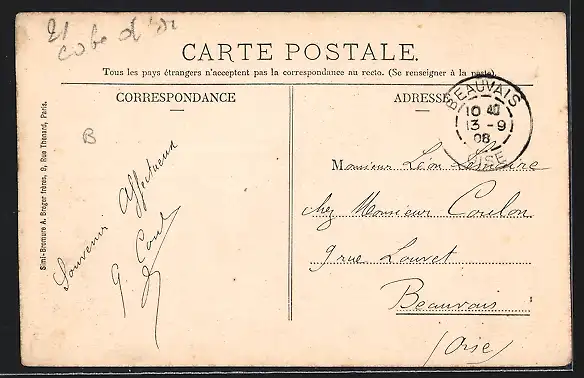 21
cote d'or
CARTE POSTALE.
Tous les pays étrangers n'acceptent pas la correspondance au recto. (Se renseigner à la poste).
CORRESPONDANCE
ADRESSE
BEAUVAIS
10 40
13 - 9
08
OISE
B
Simi-Bromure A. Breger frères, 9, Rue Thénard, Paris.
Souvenir Affectueux
G.
Monsieur Léon
chez Monsieur Coulon
9 rue Louvet
Beauvais
(Oise)